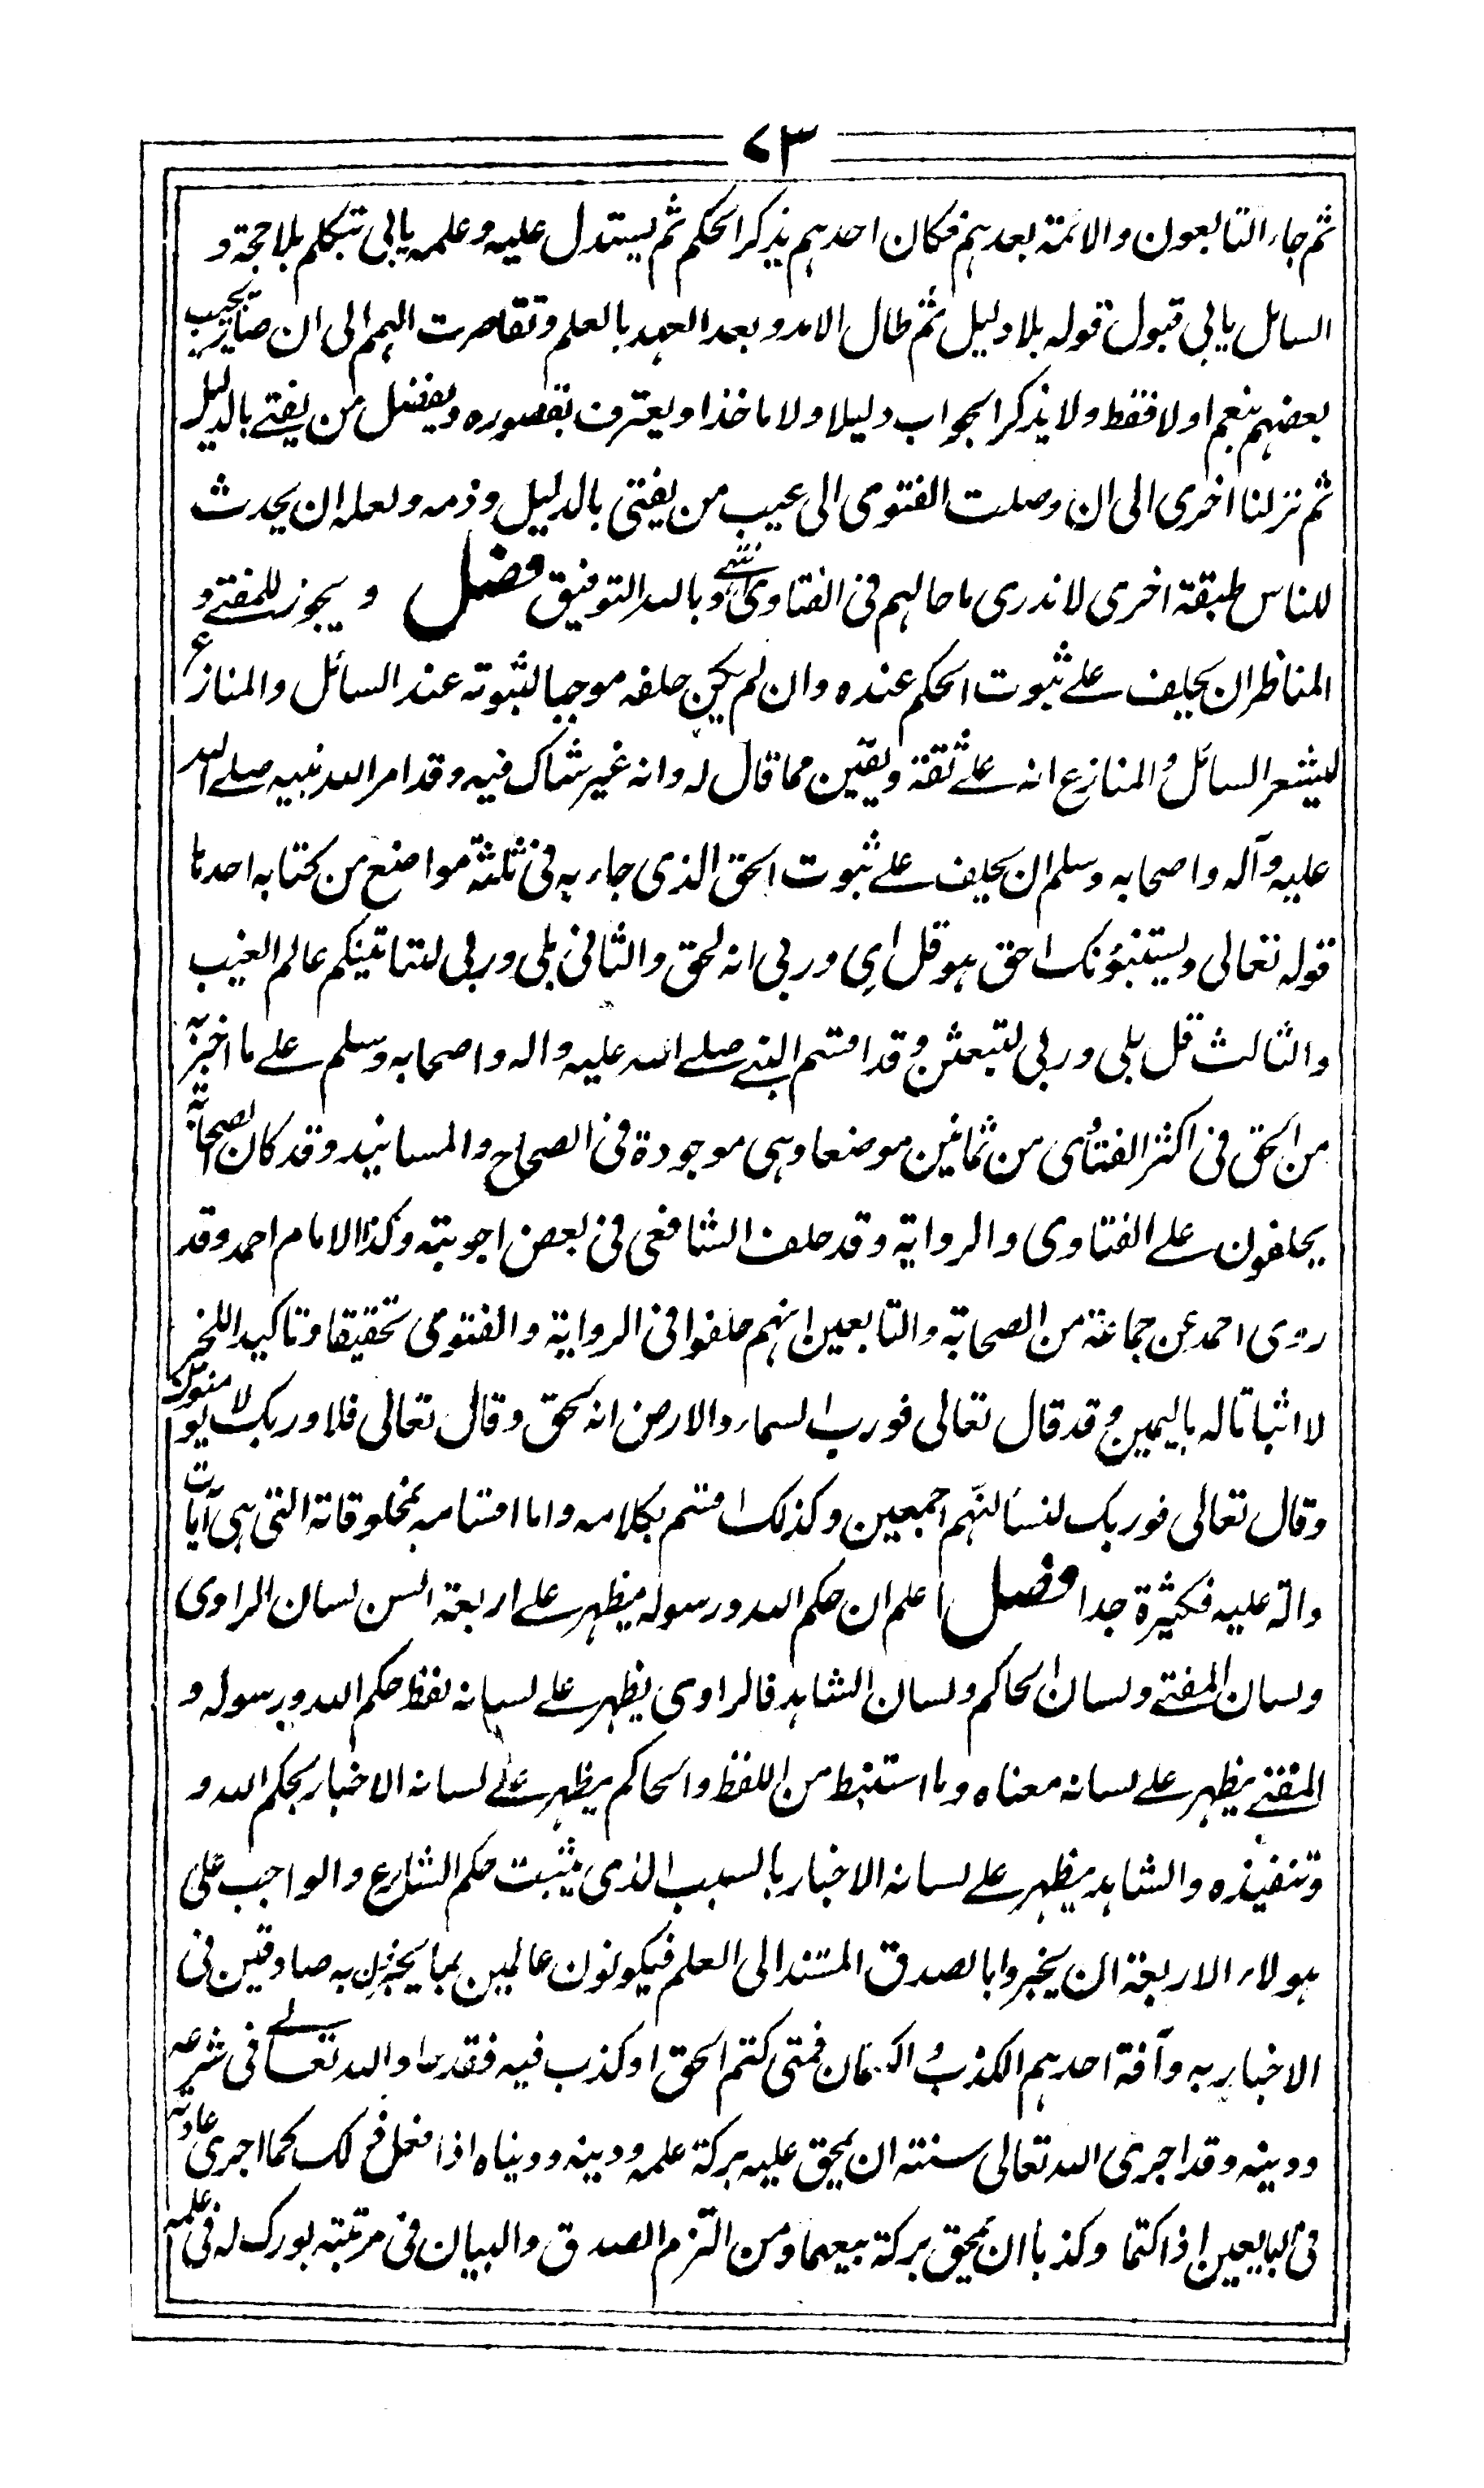 ٧٣
ثم جاء التابعون والائمة بعدہم فكان احدہم يذكر الحكم ثم يستدل عليه وعلمه يابى تتكلم بلا حجة و
السائل يابى قبول قوله بلا دليل ثم طال الامد و بعد العہد بالعلم وتقاصرت الہمم الى ان صار يجيب
بعضہم بنعم او لا فقط ولا يذكر الجواب دليلا ولا ماخذا ويعترف بقصوره ويفضل من يفتے بالدليل
ثم نزلنا اخرى الى ان وصلت الفتوى الى عيب من يفتى بالدليل وذمه ولعله ان يحدث
للناس طبقة اخرى لا ندرى ما حالہم فى الفتاوى انتہے وبالله التوفيق فصل ويجوز للمفتے و
المناظر ان يحلف علے ثبوت الحكم عنده وان لم يكن حلفه موجبا لثبوته عند السائل والمنازع
ليشعر السائل والمنازع انه علے ثقة ويقين مما قال له وانه غير شاك فيه وقد امر الله نبيه صلے الله
عليه وآله واصحابه وسلم ان يحلف علے ثبوت الحق الذى جاء به فى ثلثة مواضع من كتابه احدہا
قوله تعالى ويستنبؤنك احق ہو قل اي وربى انه لحق والثانى بلى وربى لتاتينكم عالم الغيب
والثالث قل بلى وربى لتبعثن وقد اقسم النبے صلے الله عليه واله واصحابه وسلم علے ما اخبر به
من الحق فى اكثر الفتاوى من ثمانين موضعا وہى موجودة فى الصحاح والمسانيد وقد كان الصحابة
يحلفون علے الفتاوى والرواية وقد حلف الشافعى فى بعض اجوبته وكذا الامام احمد وقد
روى احمد عن جماعة من الصحابة والتابعين انہم حلفوا فى الرواية والفتوى تحقيقا وتاكيدا للخبر
لا اثباتا له باليمين وقد قال تعالى فورب السماء والارض انه لحق وقال تعالى فلا وربك لا يومنون
وقال تعالى فوربك لنسالنہم اجمعين وكذلك اقسم بكلامه واما اقسامه بمخلوقاته التى ہى آيات
دالة عليه فكثيرة جدا فصل اعلم ان حكم الله ورسوله يظہر علے اربعة السن لسان الراوى
ولسان المفتے ولسان الحاكم ولسان الشاہد فالراوى يظہر علے لسانه لفظ حكم الله ورسوله و
المفتے يظہر علے لسانه معناه وما استنبط من اللفظ والحاكم يظہر علے لسانه الاخبار بحكم الله و
وتنفيذه والشاہد يظہر علے لسانه الاخبار بالسبب الذى يثبت حكم الشارع والواجب على
ہولاء الاربعة ان يخبروا بالصدق المستند الى العلم فيكونون عالمين بما يخبرون به صادقين فى
الاخبار به وآفة احدہم الكذب والكتمان فمتى كتم الحق او كذب فيه فقد حاد الله تعالے فى شرعه
ودينه وقد اجرى الله تعالى سنته ان يمحق عليه بركة علمه ودينه ودنياه اذا فعل ذلك كما اجرى عادته
فى البايعين اذا كتما وكذبا ان يمحق بركة بيعہما ومن التزم الصدق والبيان فى مرتبته بورك له فى علمه